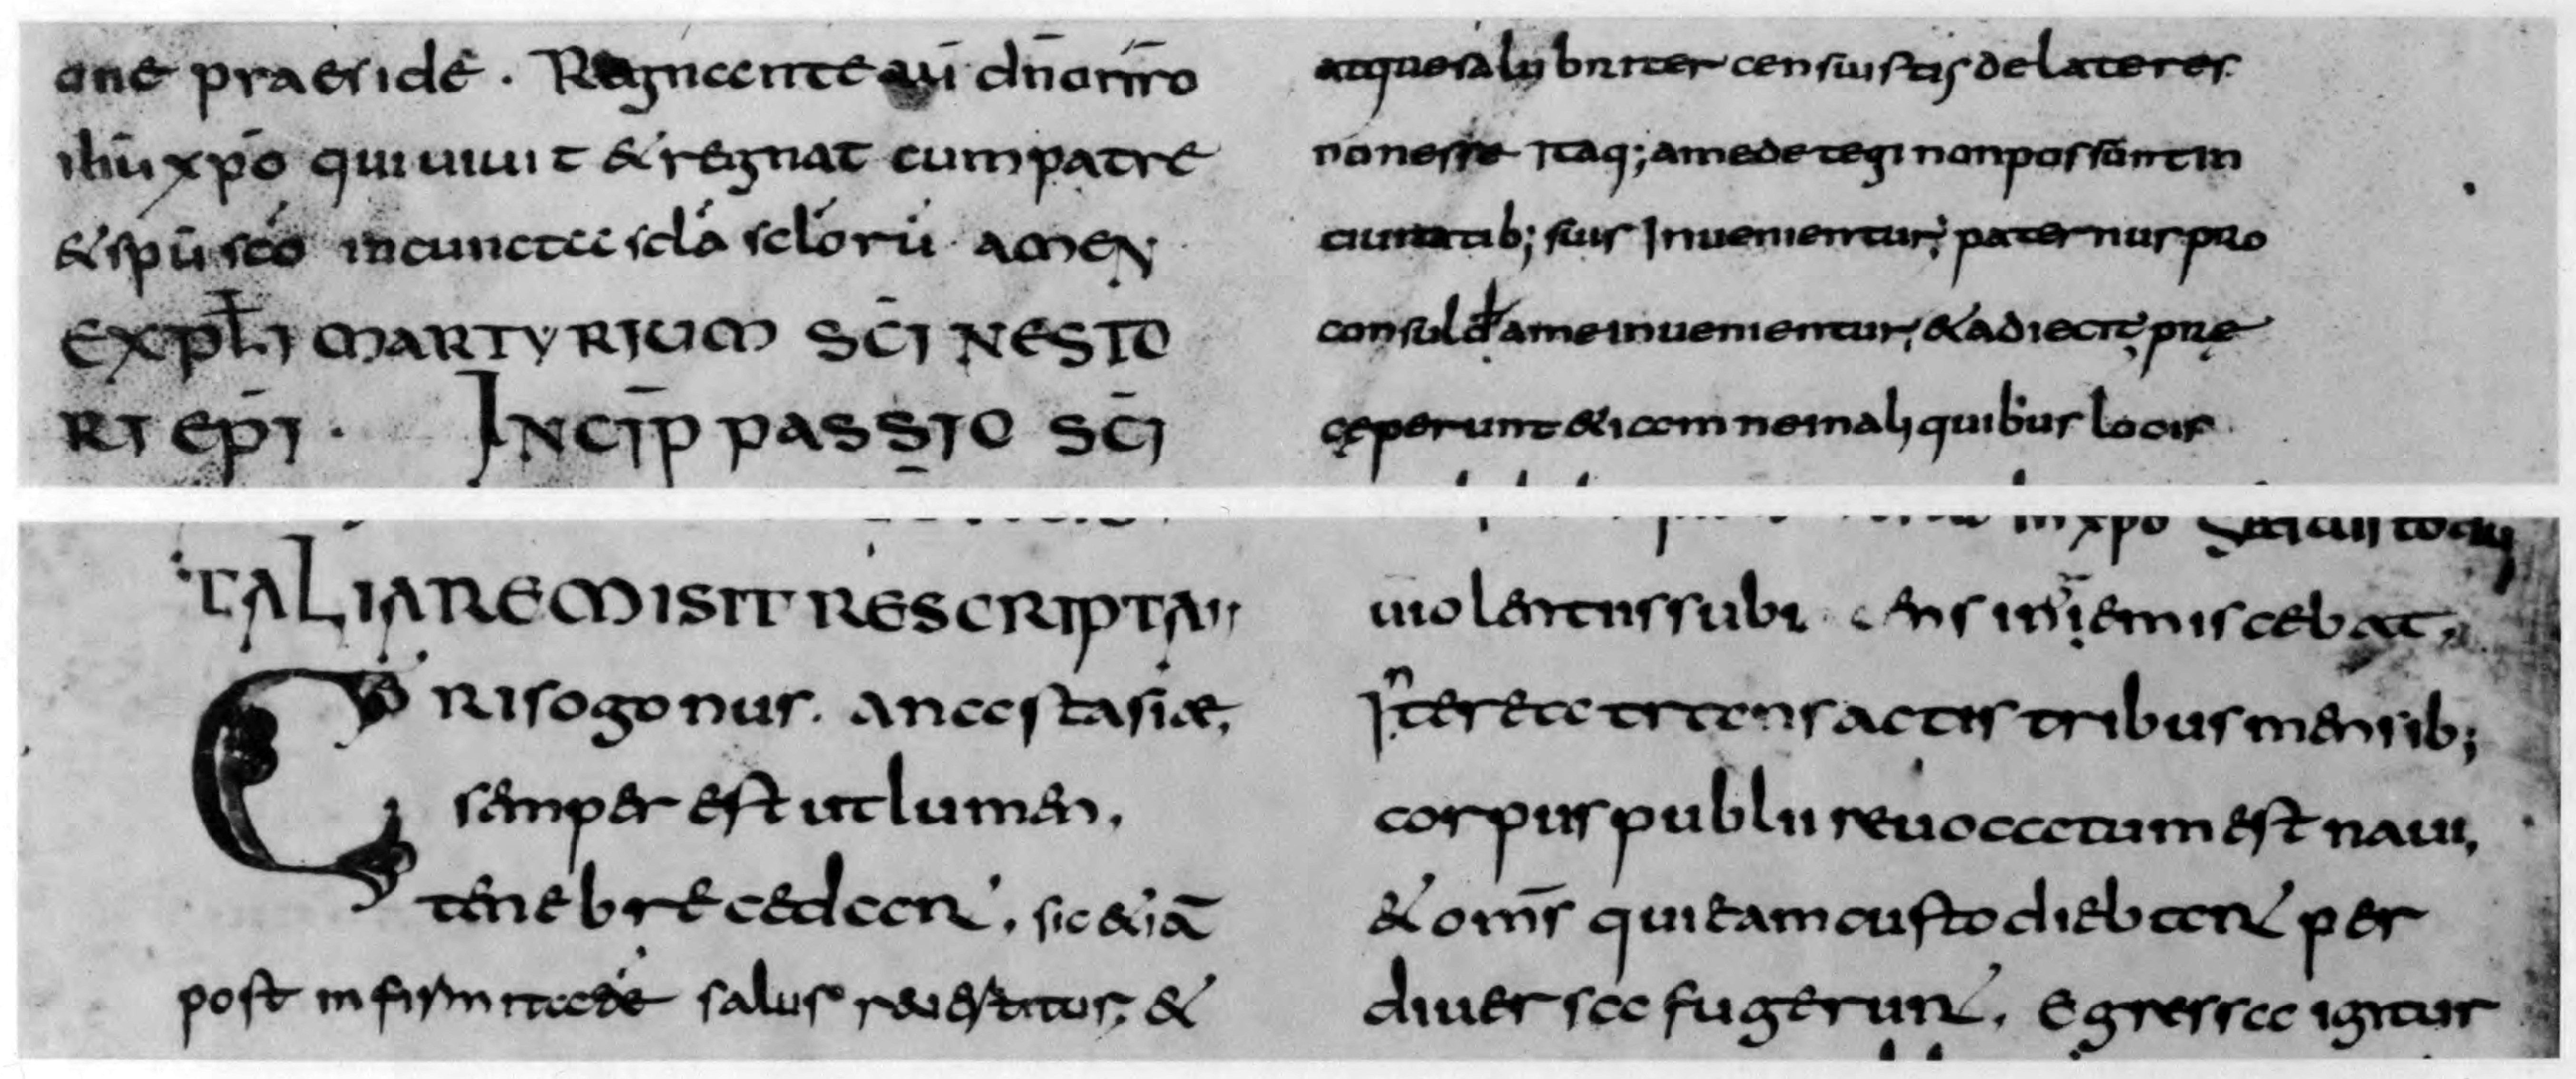 ane praeside . Regnante aū dn̄o nr̄o
ihū xpō qui uiuit & regnat cum patre
& spū scō in cuncta scla sclorū amen
EXPLI MARTYRIUM SCI NESTO
RI EPI · INCIP PASSIO SCI
atque salubriter censuistis de lateres
non esse Itaq; a me detegi non possunt in
ciuitatib; suis Inuenientur; paternus pro
consul d̄ a me inuenientur; & adiecit; prę
ceperunt & iam ne in aliquibus locis
TALIA REMISIT RESCRIPTA
Crisogonus. anastasiae,
semper est ut lumen,
tenebre cedant, sic & iā
post infirmitate salus reuestitur; &
uiolentus subi
Interea transactis tribus mensib;
corpus publii reuocatum est naui,
& om̄s qui eam custodiebant per
diuersa fugerunt, Egressa igitur